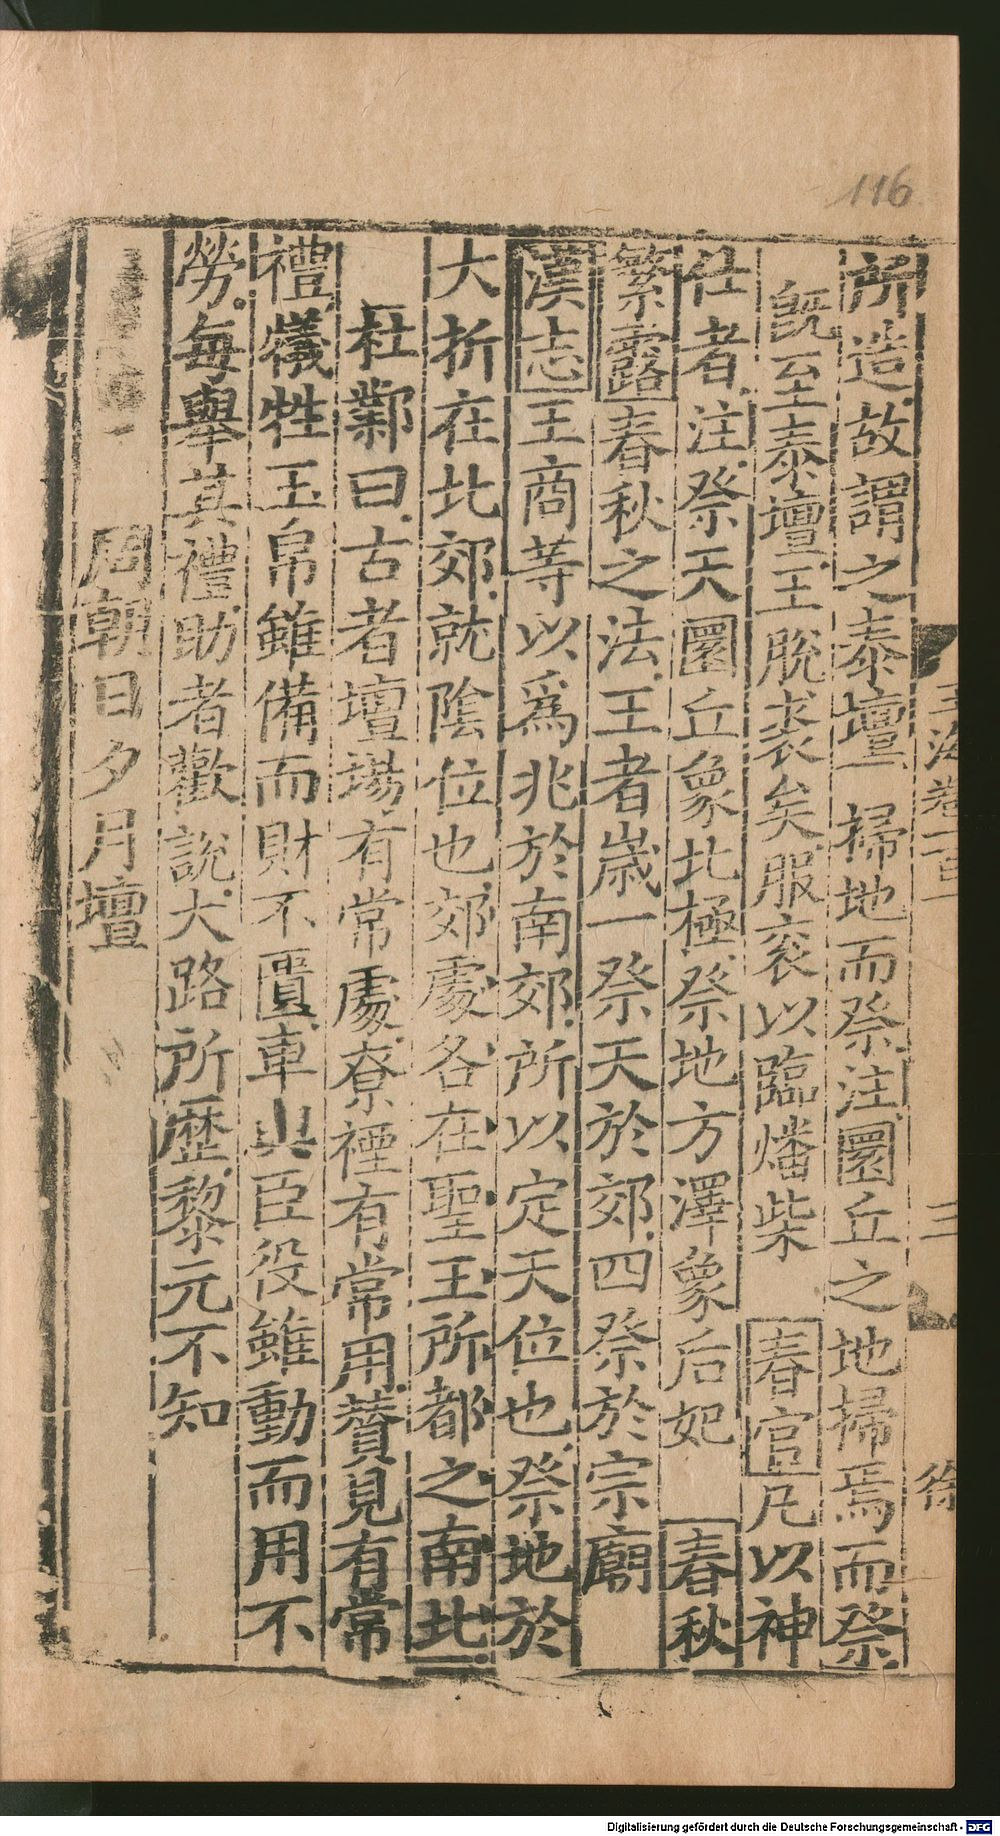 116
玉海卷一百一
三
徐
所造故謂之泰壇掃地而祭注圜丘之地掃焉而祭
既至泰壇王脫裘矣服衮以臨燔柴 春官凡以神
仕者注祭天圜丘象北極祭地方澤象后妃 春秋
繁露春秋之法王者歲一祭天於郊四祭於宗廟
漢志王商等以爲兆於南郊所以定天位也祭地於
大折在北郊就陰位也郊處各在聖王所都之南北
杜鄴曰古者壇場有常處尞禋有常用贊見有常
禮犧牲玉帛雖備而財不匱車輿臣役雖動而用不
勞每舉其禮助者歡說大路所歷黎元不知
周朝日夕月壇
Digitalisierung gefördert durch die Deutsche Forschungsgemeinschaft - DFG